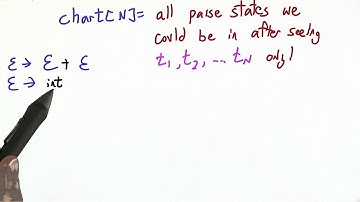 chart[N] = all parse states we
could be in after seeing
t1, t2, ... tN only!
ε → ε + ε
ε → int